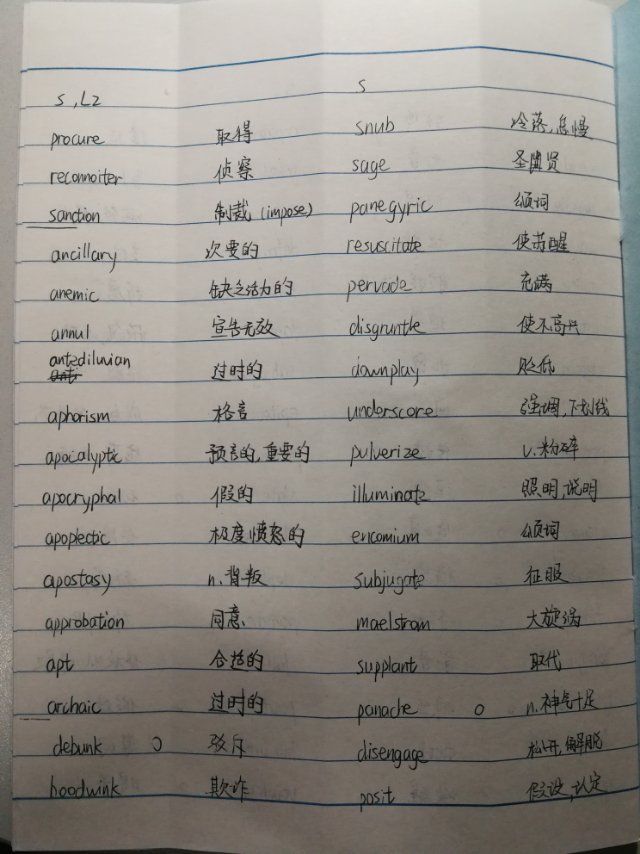 S, L2 S
procure 取得 snub 冷落,怠慢
reconnoiter 侦察 sage 圣贤
sanction 制裁(impose) panegyric 颂词
ancillary 次要的 resuscitate 使苏醒
anemic 缺乏活力的 pervade 充满
annul 宣告无效 disgruntle 使不高兴
antediluvian 过时的 downplay 贬低
aphorism 格言 underscore 强调,下划线
apocalyptic 预言的,重要的 pulverize v.粉碎
apocryphal 假的 illuminate 照明,说明
apoplectic 极度愤怒的 encomium 颂词
apostasy n.背叛 subjugate 征服
approbation 同意 maelstrom 大旋涡
apt 合适的 supplant 取代
archaic 过时的 panache o n.神气十足
debunk o 驳斥 disengage 松开,解脱
hoodwink 欺诈 posit 假设,认定